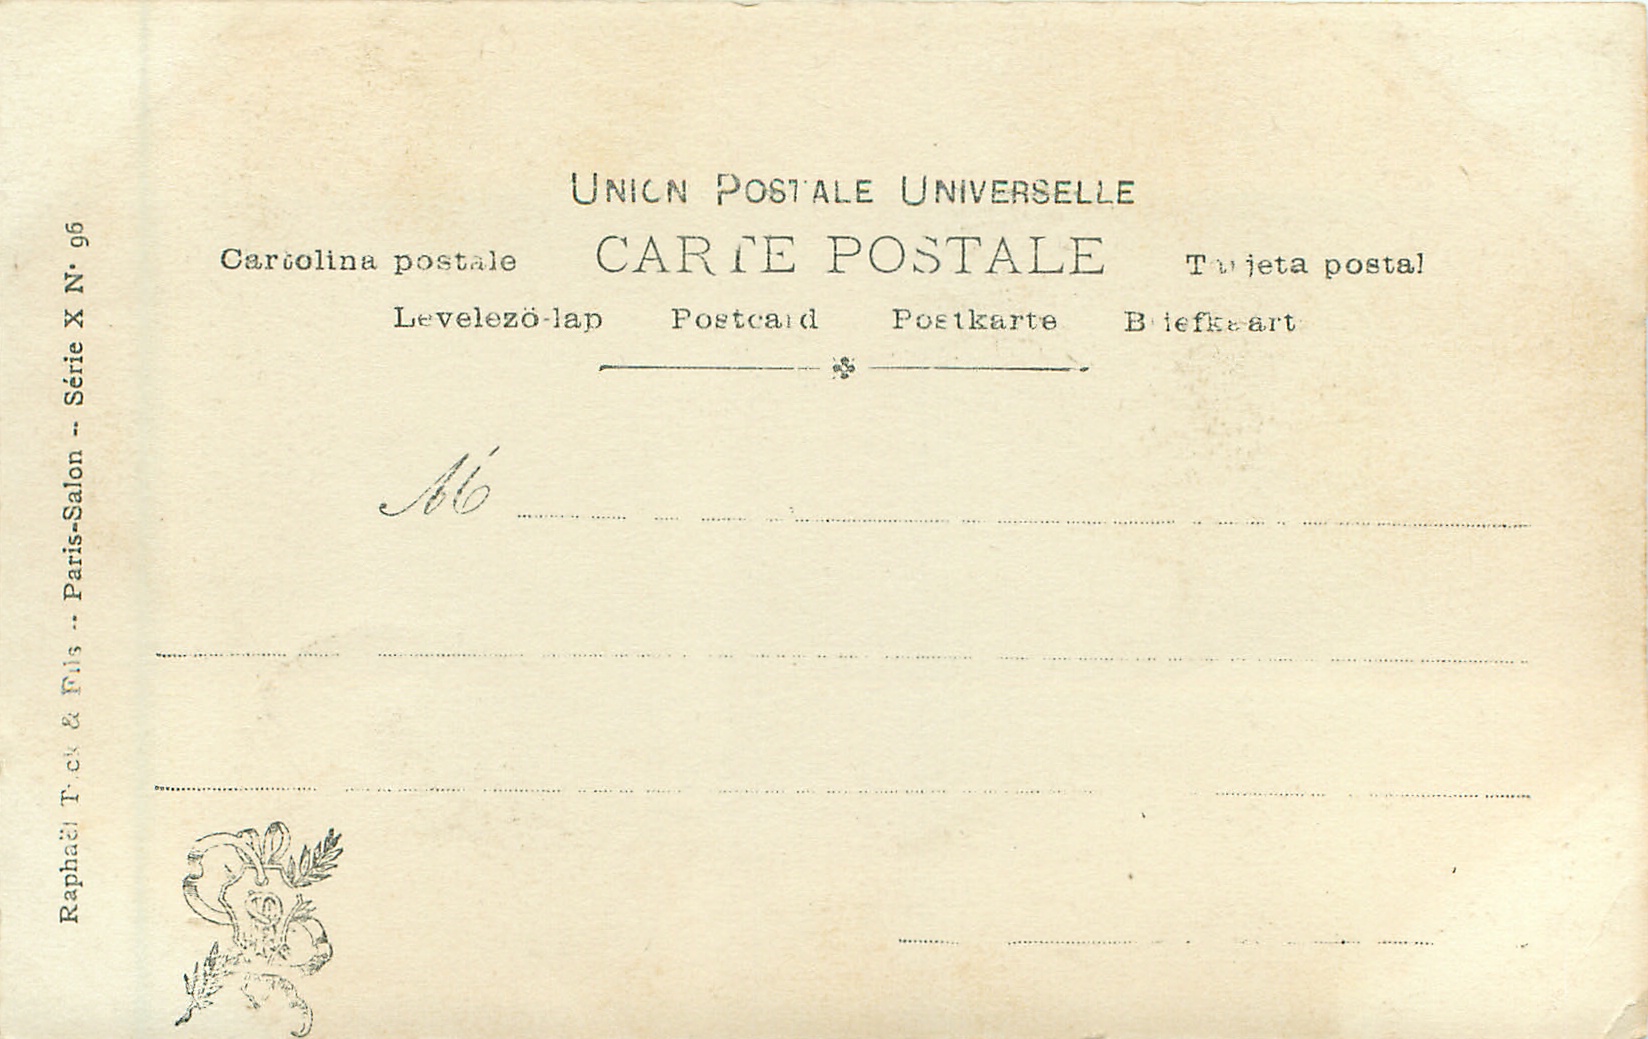 UNION POSTALE UNIVERSELLE
Cartolina postale CARTE POSTALE Tarjeta postal
Levelező-lap Postcard Postkarte Briefkaart
M
Raphaël Tuck & Fils -- Paris-Salon -- Série X N° 96